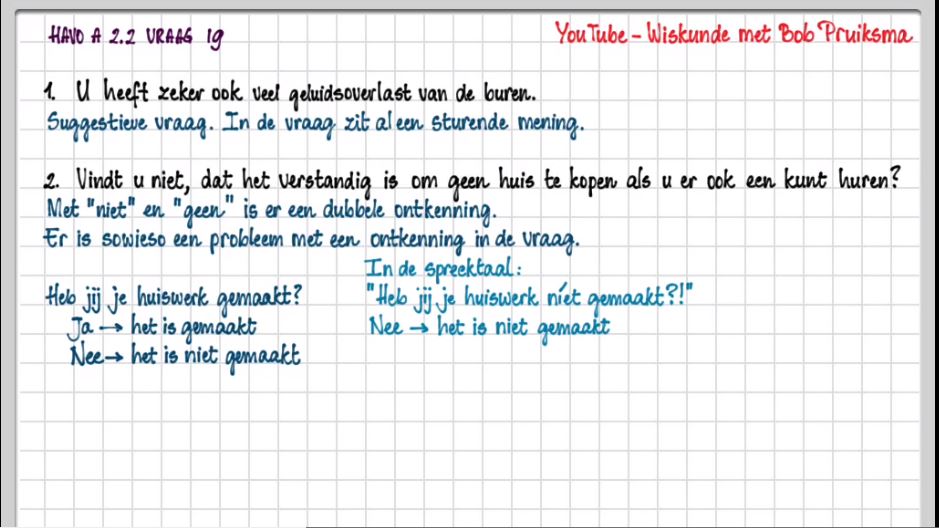 HAVO A 2.2 VRAAG 19
YouTube - Wiskunde met Bob Pruiksma
1. U heeft zeker ook veel geluidsoverlast van de buren.
Suggestieve vraag. In de vraag zit al een sturende mening.
2. Vindt u niet, dat het verstandig is om geen huis te kopen als u er ook een kunt huren?
Met "niet" en "geen" is er een dubbele ontkenning.
Er is sowieso een probleem met een ontkenning in de vraag.
In de spreektaal:
Heb jij je huiswerk gemaakt?
"Heb jij je huiswerk níet gemaakt?!"
Ja → het is gemaakt
Nee → het is niet gemaakt
Nee → het is niet gemaakt